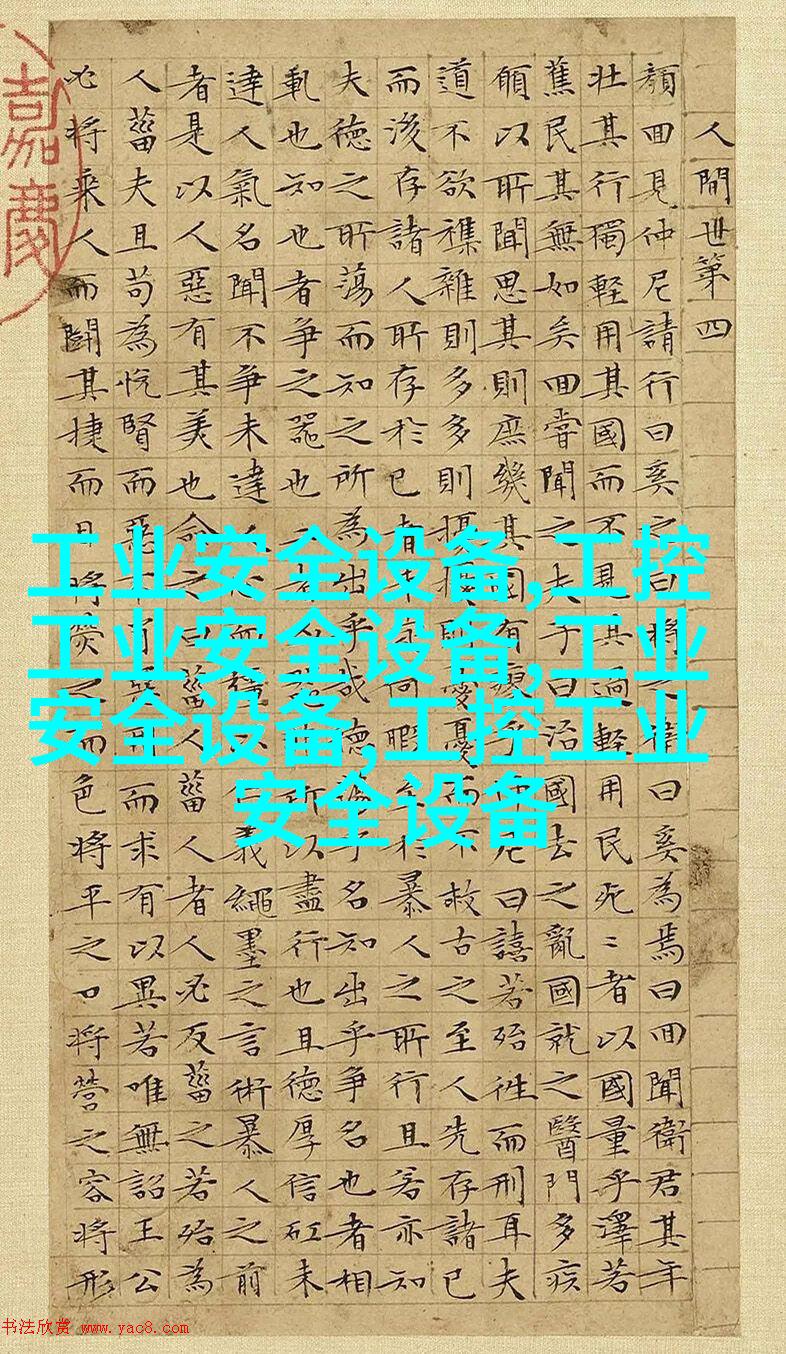 人間世第四
顏回見仲尼請行曰奚之曰將之衛曰奚為焉曰回聞衛君其年
壯其行獨輕用其國而不見其過輕用民死〻者以國量乎澤若
蕉民其無如矣回嘗聞之夫子曰治國去之亂國就之醫門多疾
願以所聞思其則庶幾其國有瘳乎仲尼曰譆若殆往而刑耳夫
道不欲襍雜則多多則擾擾則憂憂而不救古之至人先存諸己
而後存諸人所存於己者未定何暇至於暴人之所行且若亦知
夫德之所蕩而知之所為出乎哉德蕩乎名知出乎爭名也者相
軋也知也者爭之器也二者凶器所以盡行也且德厚信矼未
達人氣名聞不爭未達人心而彊以仁義繩墨之言術暴人之前
者是以人惡有其美也命之曰菑人菑人者人必反菑之若殆為
人菑夫且苟為悅賢而惡不肖惡用而求有以異若唯無詔王公
必將乘人而鬭其捷而目將熒之而色將平之口將營之容將形
嘉慶
工业安全设备,工控
工业安全设备,工业
安全设备,工控工业
安全设备
书法欣赏 www.yac8.com